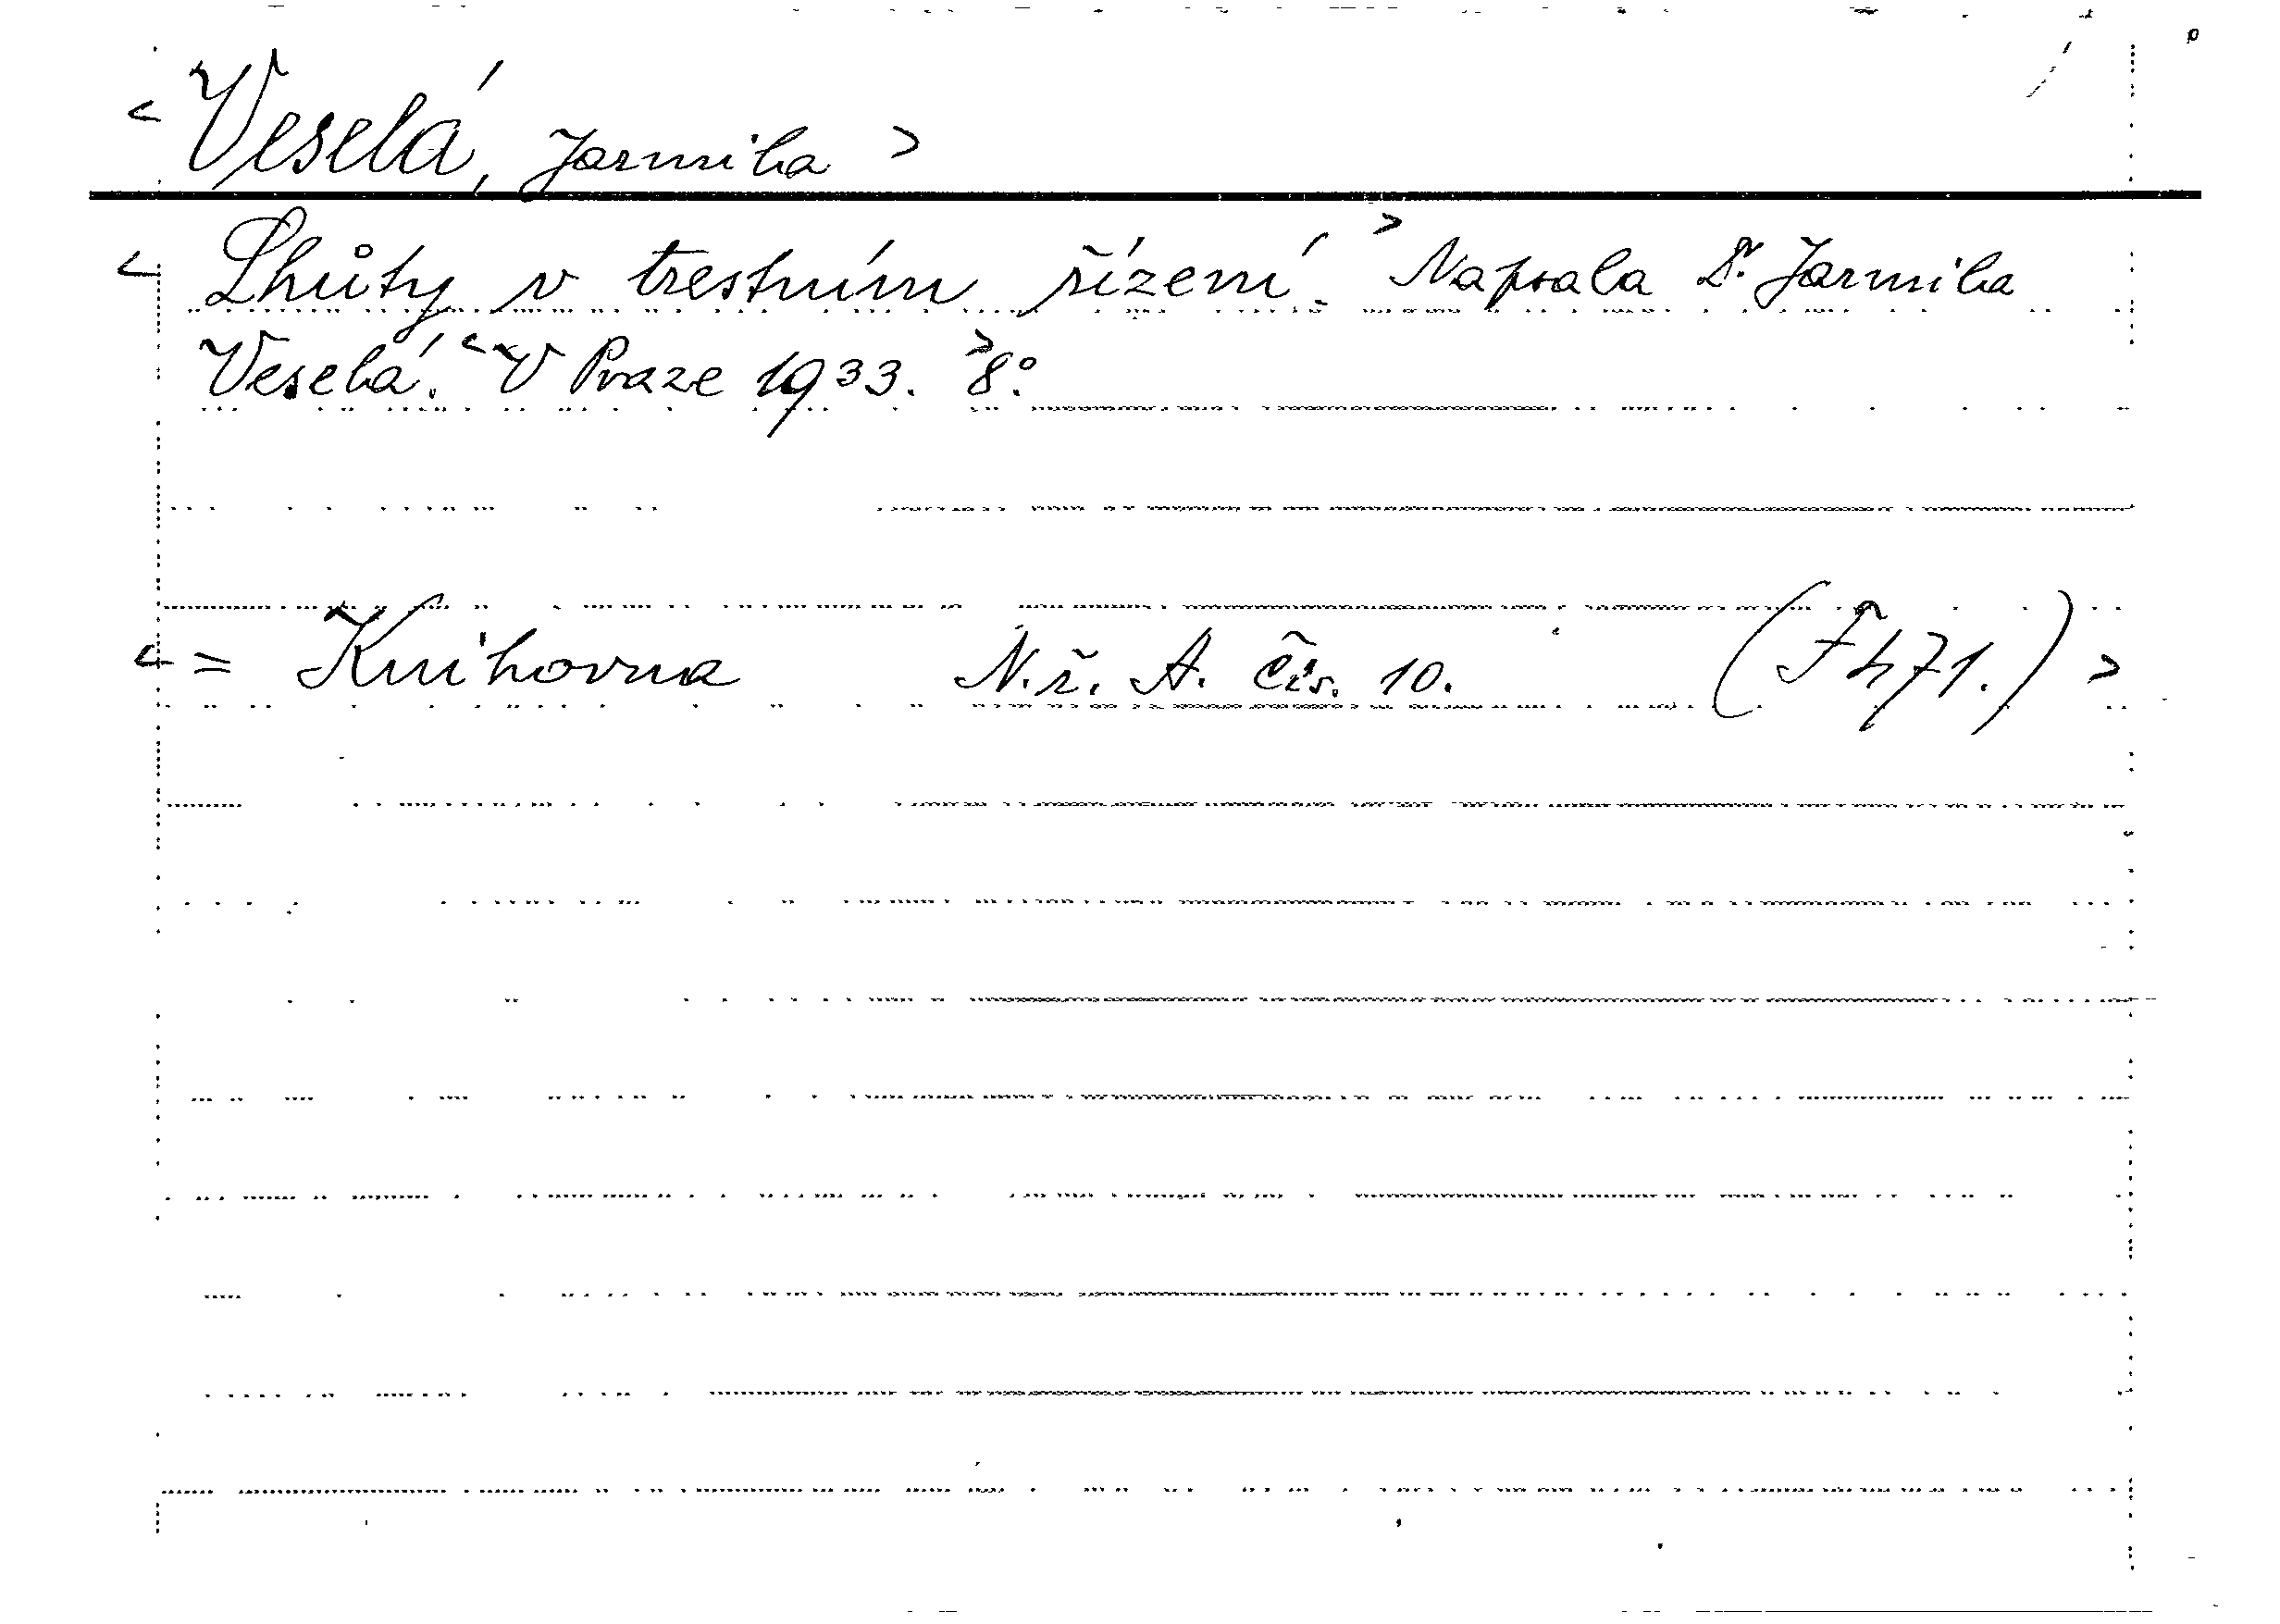 < Veselá, Jarmila >
< Lhůty v trestním řízení. > Napsala Dr. Jarmila
Veselá. < V Praze 1933. > 8°.
< = Knihovna N.ř. A. čís. 10. (F h 71.) >